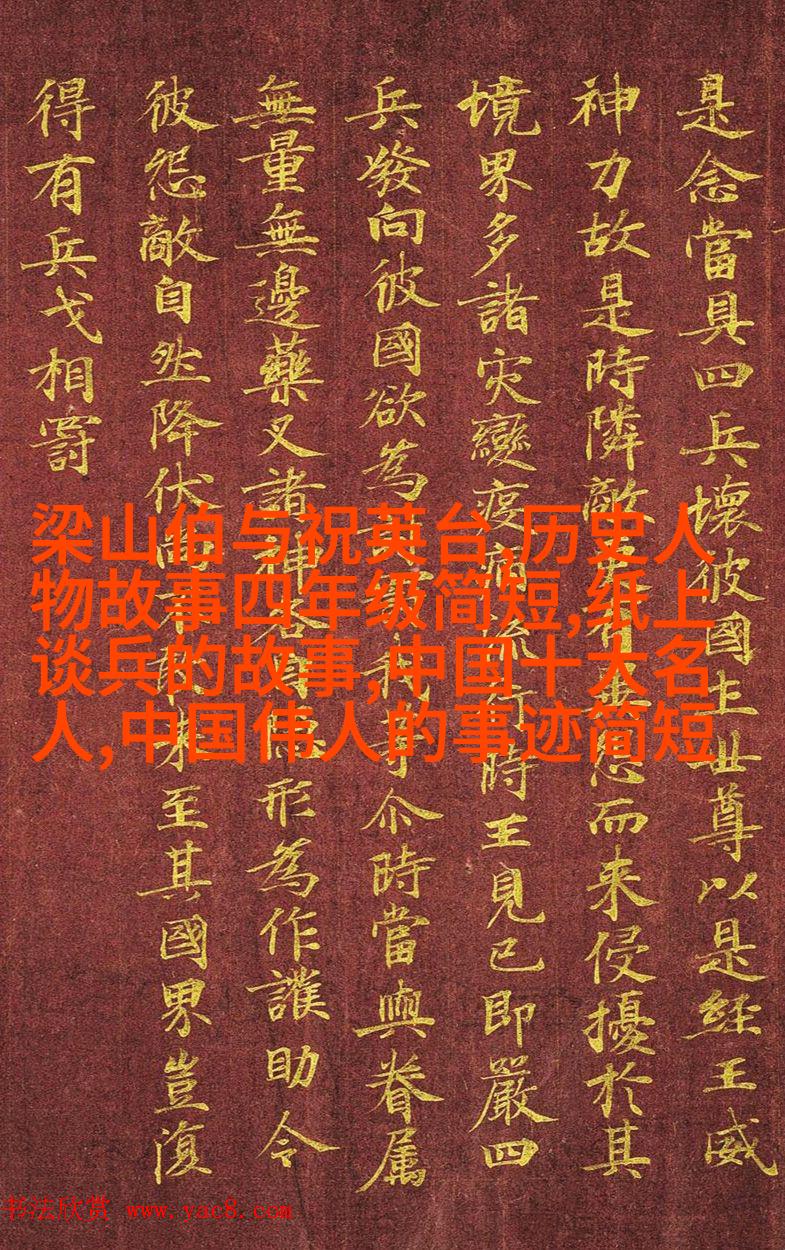 是念當具四兵壞彼國土世尊以是經王威
神力故是時隣敵有怨而来侵擾於其
境界多諸灾變疫病流行時王見已即嚴四
兵發向彼國欲為我等尒時當與眷属
無量無邊藥叉諸神各自形為作護助令
彼怨敵自然降伏尚不敢来至其國界豈復
得有兵戈相罸
梁山伯与祝英台,历史人
物故事四年级简短,纸上
谈兵的故事,中国十大名
人,中国伟人的事迹简短
书法欣赏 www.yac8.com